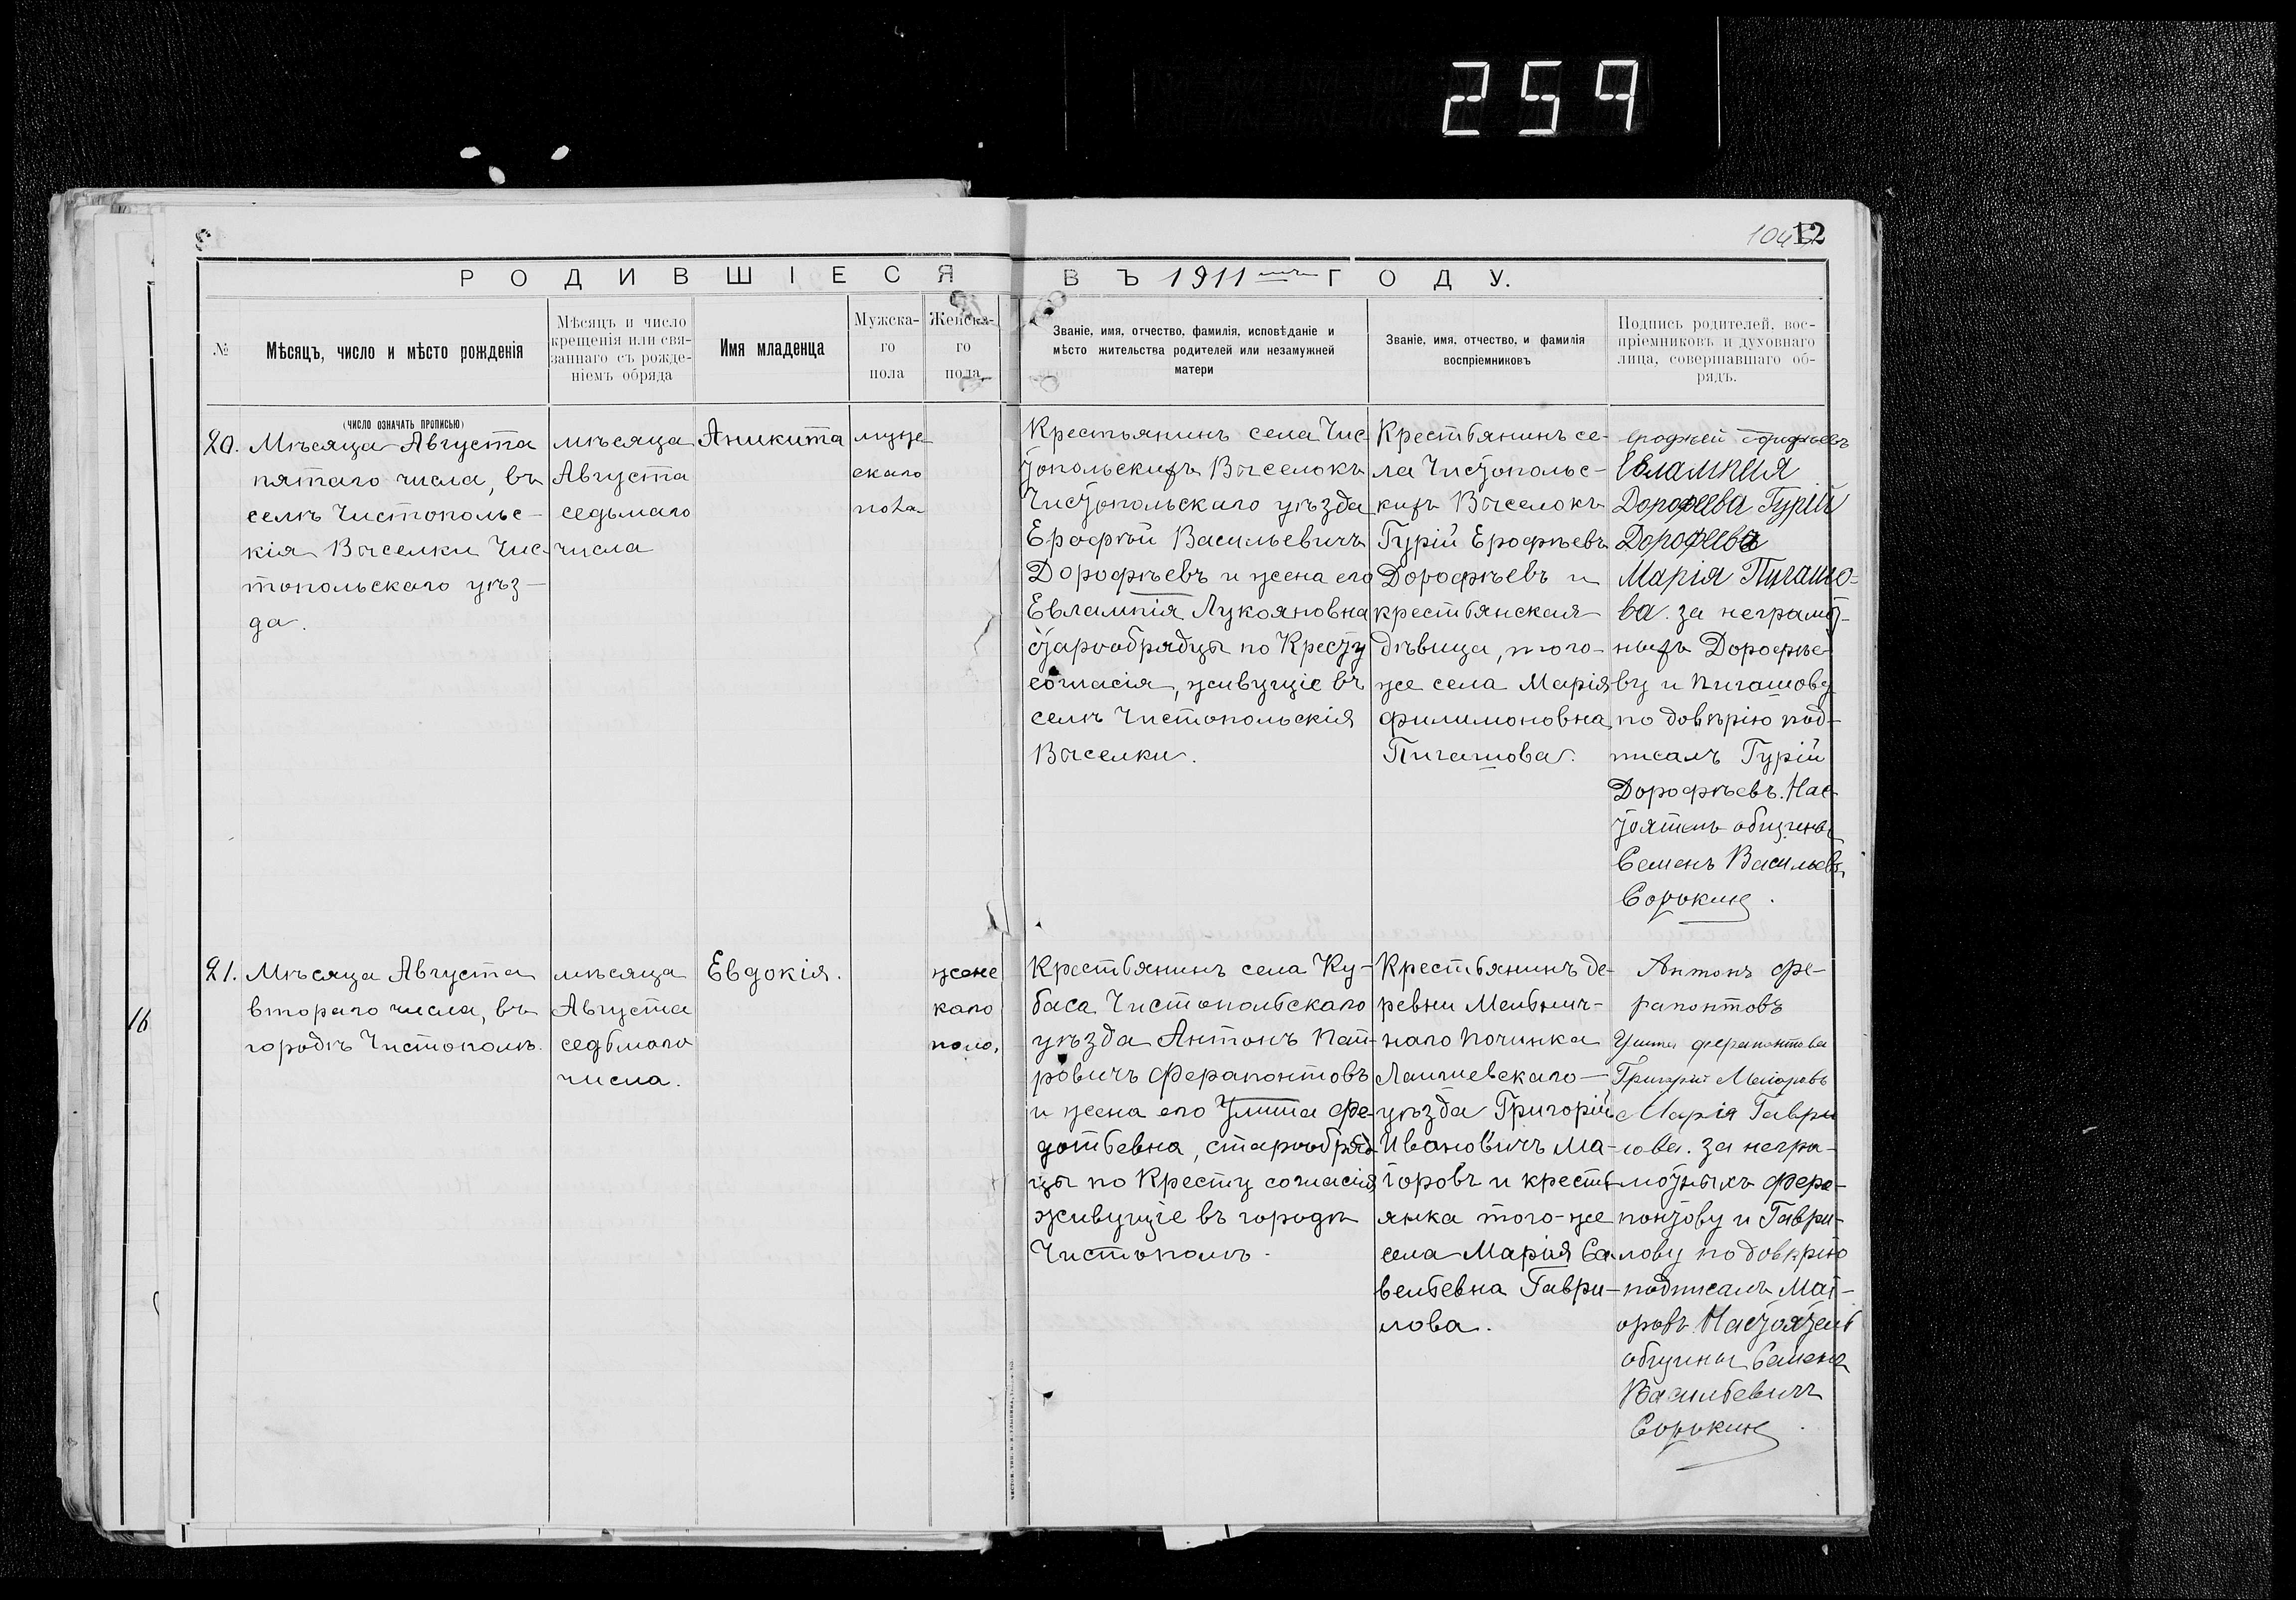 259
12
РОДИВШІЕСЯ ВЪ 1911 ГОДУ.
№
Мѣсяцъ, число и мѣсто рожденія
Мѣсяцъ и число
крещенія или свя-
заннаго съ рожде-
ніемъ обряда
Имя младенца
Мужска-
го
пола
Женска-
го
пола
Званіе, имя, отчество, фамилія, исповѣданіе и
мѣсто жительства родителей или незамужней
матери
Званіе, имя, отчество, и фамилія
воспріемниковъ
Подпись родителей, вос-
пріемниковъ и духовнаго
лица, совершавшаго об-
рядъ.
(ЧИСЛО ОЗНАЧАТЬ ПРОПИСЬЮ)
20.
Мѣсяца Августа
пятаго числа, въ
селѣ Чистопольс-
кія Выселки Чис-
топольскаго уѣз-
да.
мѣсяца
Августа
седьмаго
числа
Аникита
муже
скаго
пола
Крестьянинъ села Чис
топольскихъ Выселокъ
Чистопольскаго уѣзда
Ерофѣй Васильевичъ
Дорофѣевъ и жена его
Евлампія Лукояновна
старообрядцы по Кресту
согласія, живущіе въ
селѣ Чистопольскія
Выселки.
Крестьянинъ се-
ла Чистопольс-
кихъ Выселокъ
Гурій Ерофѣевъ
Дорофѣевъ и
крестьянская
дѣвица, того-
же села Марія
Филимоновна
Пигашова.
Евлампия
Дорофеева Гурій
Дорофеевъ
Марія Пигашо-
ва. за неграмот-
ныхъ Дорофѣе-
ву и Пигашову
по довѣрію под-
писалъ Гурій
Дорофѣевъ. Нас-
тоятель общины
Семенъ Васильевъ
Сорокинъ.
16
21.
Мѣсяца Августа
втораго числа, въ
городѣ Чистополѣ.
мѣсяца
Августа
седьмого
числа.
Евдокія.
женс
каго
пола,
Крестьянинъ села Ку-
баса Чистопольскаго
уѣзда Антонъ
Ферапонтовъ
и жена его Улита Фе-
дотьевна, старообряд-
цы по Кресту согласія,
живущіе въ городѣ
Чистополѣ.
Крестьянинъ де-
ревни Мельнич-
наго Починка
Лаишевскаго
уѣзда Григорій
Ивановичъ Ма-
іоровъ и кресть-
янка того-же
села Марія Са
вельевна Гаври-
лова.
Антонъ Фе-
рапонтовъ
Улита Ферапонтова
Григорій Маіоровъ
Марія Гаври
лова. за негра-
мотныхъ Фера-
понтову и Гаври-
лову по довѣрію
подписалъ Маі-
оровъ. Настоятель
общины Семенъ
Васильевичъ
Сорокинъ.